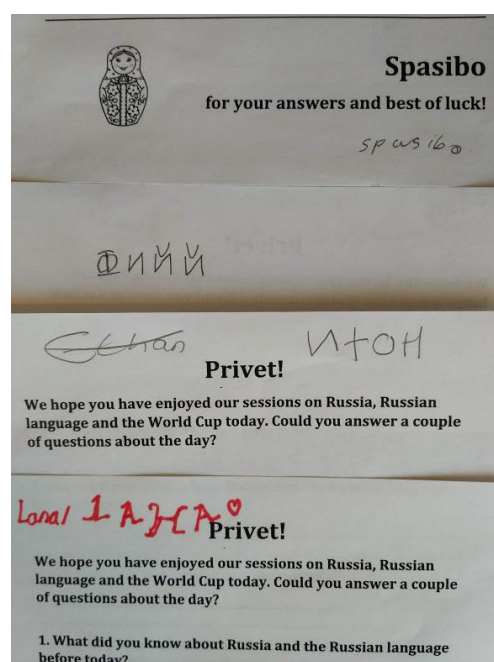 Spasibo
for your answers and best of luck!
spasibo
Фийй
Ethan Итон
Privet!
We hope you have enjoyed our sessions on Russia, Russian
language and the World Cup today. Could you answer a couple
of questions about the day?
Privet!
We hope you have enjoyed our sessions on Russia, Russian
language and the World Cup today. Could you answer a couple
of questions about the day?
1. What did you know about Russia and the Russian language
before today?